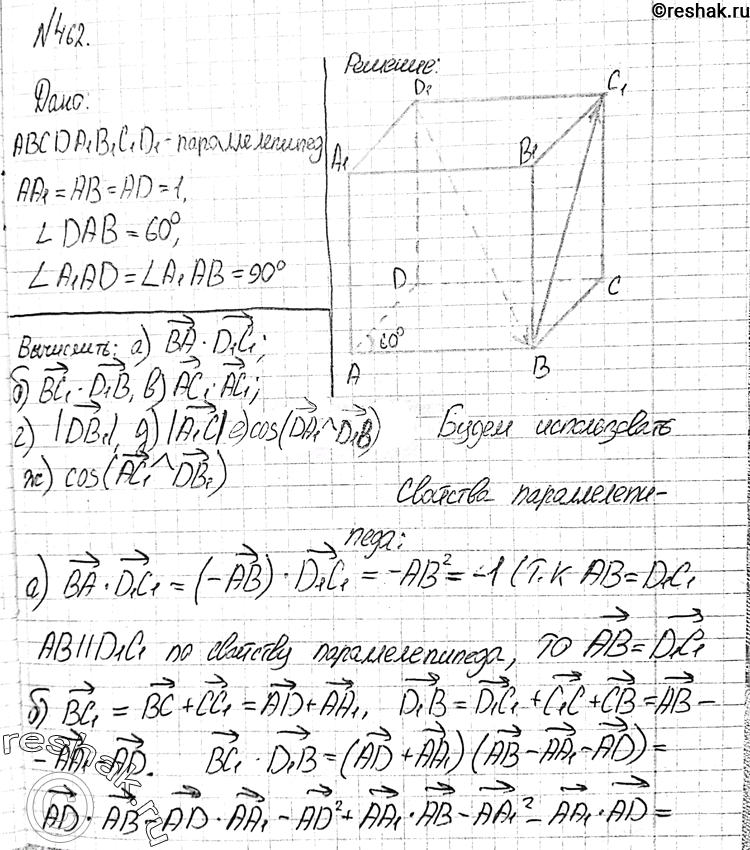 ©reshak.ru
№462.
Дано:
ABCDA₁B₁C₁D₁ - параллелепипед
AA₁ = AB = AD = 1,
∠DAB = 60°,
∠A₁AD = ∠A₁AB = 90°
Решение:
D₁ C₁
A₁ B₁
D C
60°
A B
Вычислить: а) BA⃗ · D₁C₁⃗;
б) BC₁⃗ · D₁B⃗, в) AC₁⃗ · AC₁⃗;
г) |DB₁⃗|, д) |A₁C⃗| е) cos(DA₁⃗ ^ D₁B⃗)
ж) cos(AC₁⃗ ^ DB₁⃗)
Будем использовать
свойства параллелепи-
педа:
а) BA⃗ · D₁C₁⃗ = (-AB⃗) · D₁C₁⃗ = -AB² = -1 (т.к AB = D₁C₁
AB || D₁C₁ по свойству параллелепипеда, то AB⃗ = D₁C₁⃗
б) BC₁⃗ = BC⃗ + CC₁⃗ = AD⃗ + AA₁⃗, D₁B⃗ = D₁C₁⃗ + C₁C⃗ + CB⃗ = AB⃗ -
- AA₁⃗ - AD⃗. BC₁⃗ · D₁B⃗ = (AD⃗ + AA₁⃗)(AB⃗ - AA₁⃗ - AD⃗) =
AD⃗ · AB⃗ - AD⃗ · AA₁⃗ - AD⃗² + AA₁⃗ · AB⃗ - AA₁⃗² - AA₁⃗ · AD⃗ =
reshak.ru